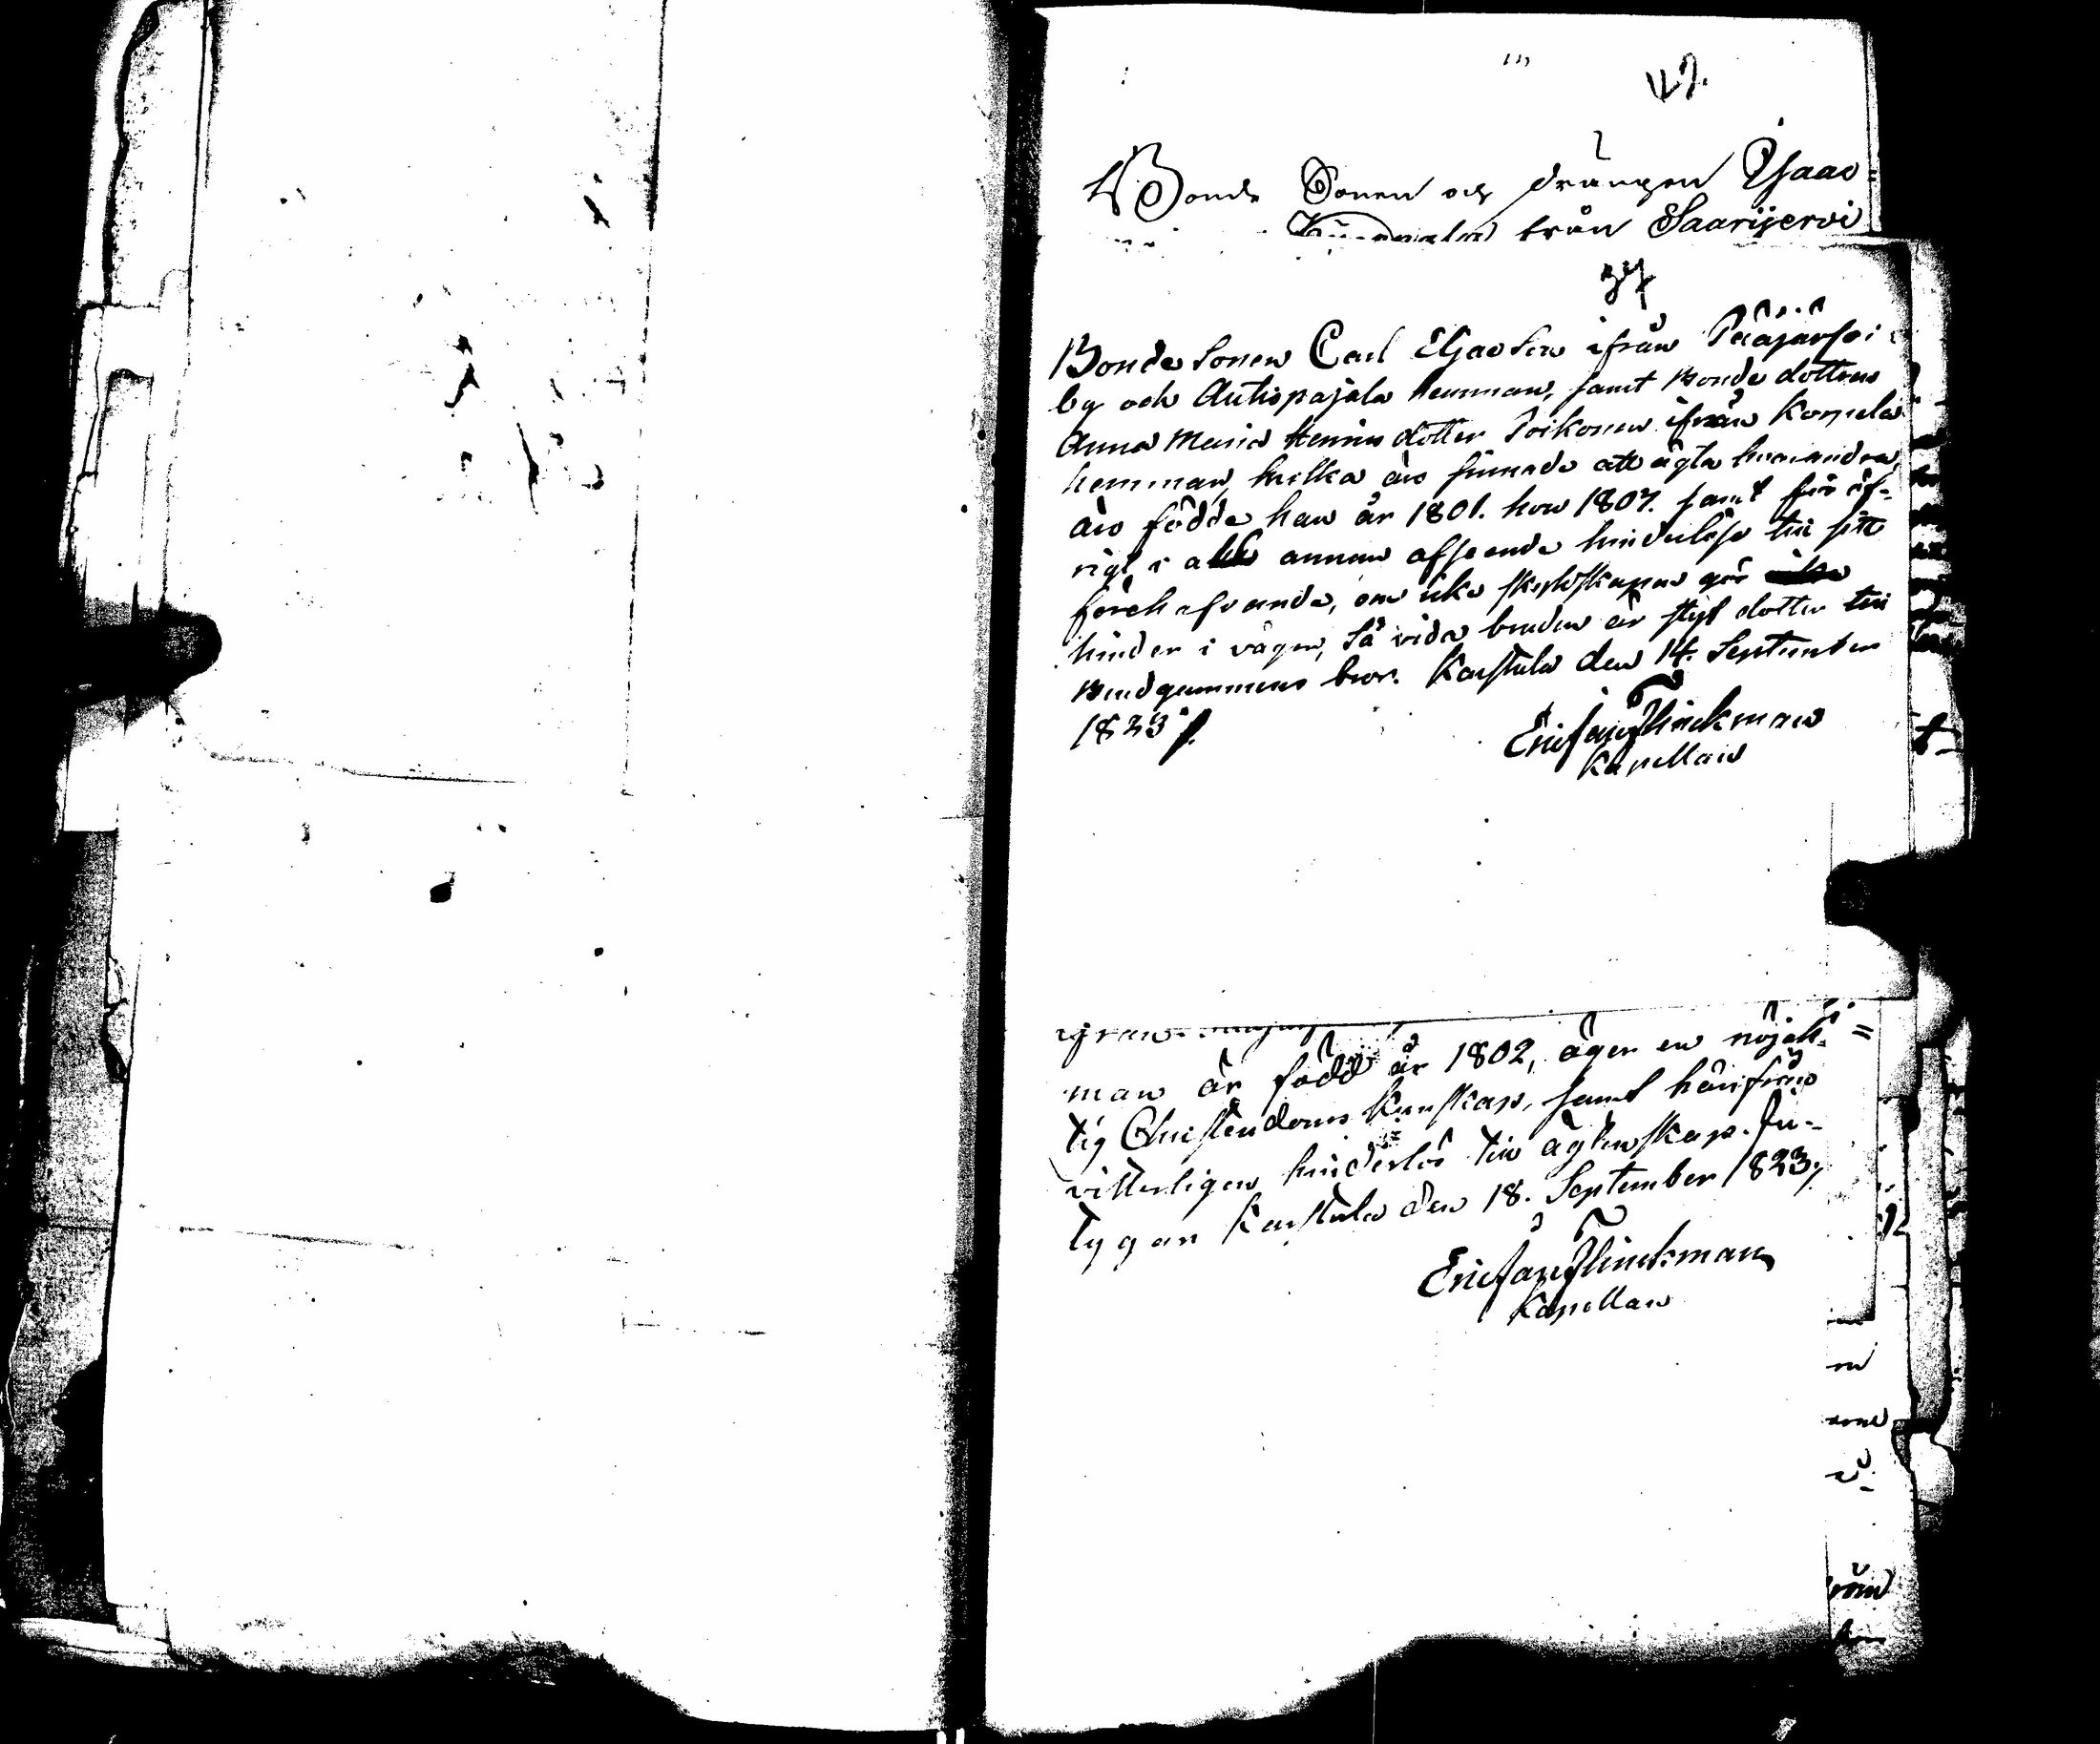 42.
Bonde Sonen och drängen Isaac
från Saarijervi
37
Bonde Sonen Carl Eliaeson ifrån Pääjärfvi
by och Autiopajala hemman, samt Bonde dottren
Anna Maria Henricsdotter Poikonen ifrån Kopela
hemman, hvilka äro sinnade att ägta hvarandra,
äro födde han år 1801. hon 1807. samt för öf-
rigt i allt annan afseende hinderlöse till sitt
förehafvande, om icke skyldskapen gör
hinder i vägen, så vida bruden är styf dotter till
Brudgummens bror. Karstula den 14. September
1823.
Eric Joh Flinckman
Kapellan
man är född år 1802, äger en nöjak-
tig Christendoms Kunskap, samt härifrån
vitterligen hinderlös till ägtenskap. be-
tygar Karstula den 18. September 1823.
Eric Joh Flinckman
Kapellan